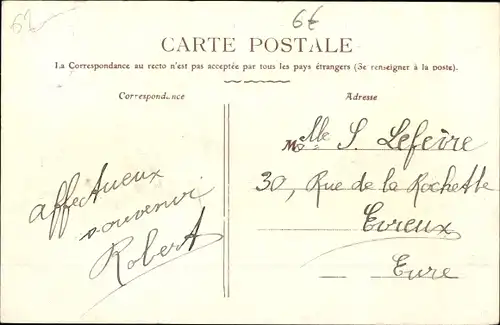 62
6€
CARTE POSTALE
La Correspondance au recto n'est pas acceptée par tous les pays étrangers (Se renseigner à la poste).
Correspondance
Adresse
Affectueux
souvenir
Robert
Mlle S. Lefèvre
30, Rue de la Rochette
Evreux
Eure